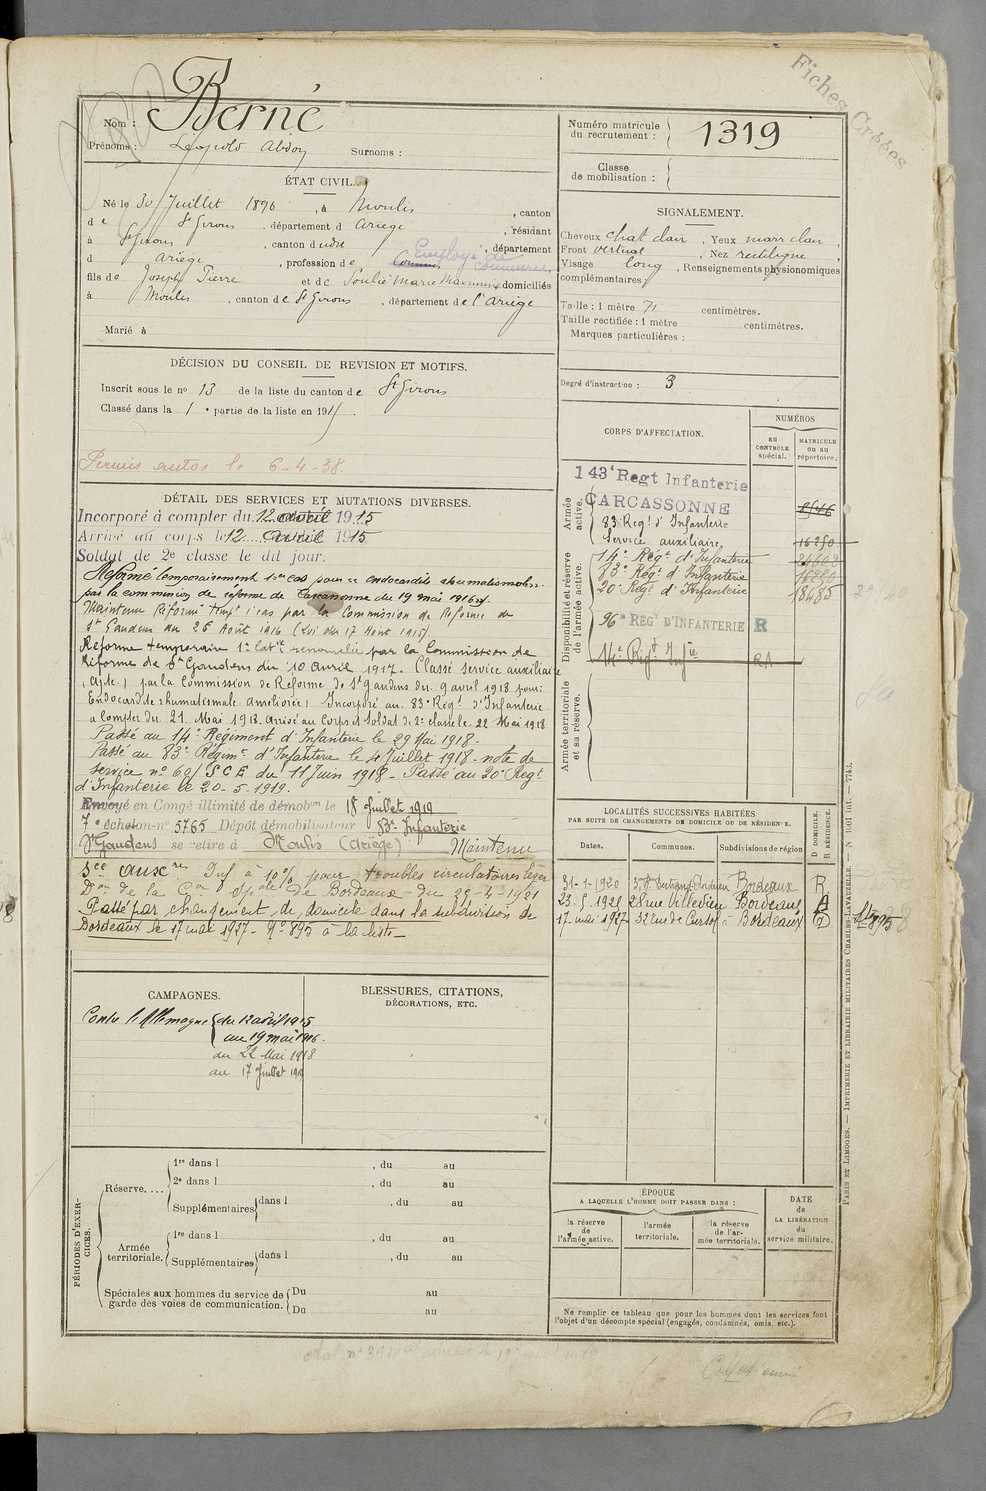 Fiches Créées
Nom : Berné
Prénoms : Léopold Abdon Surnoms :
ÉTAT CIVIL.
Né le 30 Juillet 1896, à Moulis, canton
de St Girons, département d Ariège, résidant
à St Girons, canton dudit, département
d Ariège, profession de Employé de commerce
fils de Joseph Pierre et de Soulié Marie Maximine domiciliés
à Moulis, canton de St Girons, département de l'Ariège
Marié à
DÉCISION DU CONSEIL DE REVISION ET MOTIFS.
Inscrit sous le no 13 de la liste du canton de St Girons
Classé dans la 1e partie de la liste en 1915.
Permis autos le 6-4-38.
DÉTAIL DES SERVICES ET MUTATIONS DIVERSES.
Incorporé à compter du 12 avril 1915
Arrivé au corps le 12 avril 1915
Soldat de 2e classe le dit jour.
Réformé temporairement 1er cas pour " endocardite rhumatismale "
par la commission de réforme de Carcassonne du 19 mai 1916.
Maintenu Réformé tempre 1er cas par la Commission de Réforme de
St Gaudens du 26 Août 1916 (Loi du 17 Août 1915)
Réforme temporaire 1e catie renouvelée par la Commission de
Réforme de St Gaudens du 10 avril 1917. Classé service auxiliaire
(apte) par la Commission de Réforme de St Gaudens du 9 avril 1918 pour:
Endocardite rhumatismale améliorée. Incorporé au 83e Régt d'Infanterie
a compter du 21 Mai 1918. Arrivé au Corps et Soldat de 2e classe le 22 Mai 1918
Passé au 14e Régiment d'Infanterie le 29 Mai 1918.
Passé au 83e Régimt d'Infanterie le 4 Juillet 1918 - note de
service no 60/S C E du 11 Juin 1918 - Passé au 20e Régt
d'Infanterie le 20-5-1919.
Envoyé en Congé illimité de démobon le 18 Juillet 1919
7e échelon no 5765 Dépôt démobilisateur 83e Infanterie
St Gaudens se retire à Moulis (Ariège) Maintenu
Sce auxre Inf à 10% pour troubles circulatoires léger
Don de la Con Spale de Bordeaux du 29-4-1921
Passé par changement de domicile dans la subdivision de
Bordeaux le 17 mai 1937 - No 895 à la liste
CAMPAGNES.
Contre l'Allemagne du 12 avril 1915
au 19 mai 1916.
du 22 Mai 1918
au 17 Juillet 1919
BLESSURES, CITATIONS,
DÉCORATIONS, ETC.
PÉRIODES D'EXERCICES.
Réserve....
1re dans l , du au
2e dans l , du au
Supplémentaires dans l , du au
Armée territoriale.
1re dans l , du au
Supplémentaires dans l , du au
Spéciales aux hommes du service de garde des voies de communication.
Du au
Du au
Numéro matricule du recrutement : 1319
Classe de mobilisation :
SIGNALEMENT.
Cheveux chat clair, Yeux marr clair,
Front vertical, Nez rectiligne,
Visage long, Renseignements physionomiques
complémentaires
Taille : 1 mètre 71 centimètres.
Taille rectifiée : 1 mètre centimètres.
Marques particulières :
Degré d'instruction : 3
CORPS D'AFFECTATION.
NUMÉROS
au CONTRÔLE spécial.
MATRICULE ou au répertoire.
Armée active.
143e Regt Infanterie
CARCASSONNE
83 Regt d'Infanterie
Service auxiliaire 16250
Disponibilité et réserve de l'armée active.
14e Régt d'Infanterie
83e Régt d'Infanterie 16250
20e Régt d'Infanterie 18485
96e REGt D'INFANTERIE R
14e Régt Infie
Armée territoriale et sa réserve.
LOCALITÉS SUCCESSIVES HABITÉES
PAR SUITE DE CHANGEMENTS DE DOMICILE OU DE RÉSIDENCE.
Dates. Communes. Subdivisions de région
D DOMICILE.
R RÉSIDENCE.
31-1-1920 Bordeaux R
28 rue Villedieu Bordeaux
17 mai 1937 32 rue de Cursol à Bordeaux D
895
ÉPOQUE
A LAQUELLE L'HOMME DOIT PASSER DANS :
la réserve de l'armée active.
l'armée territoriale.
la réserve de l'armée territoriale.
DATE de LA LIBÉRATION du service militaire.
Ne remplir ce tableau que pour les hommes dont les services font
l'objet d'un décompte spécial (engagés, condamnés, omis, etc.).
PARIS ET LIMOGES. — IMPRIMERIE ET LIBRAIRIE MILITAIRES CHARLES-LAVAUZELLE.